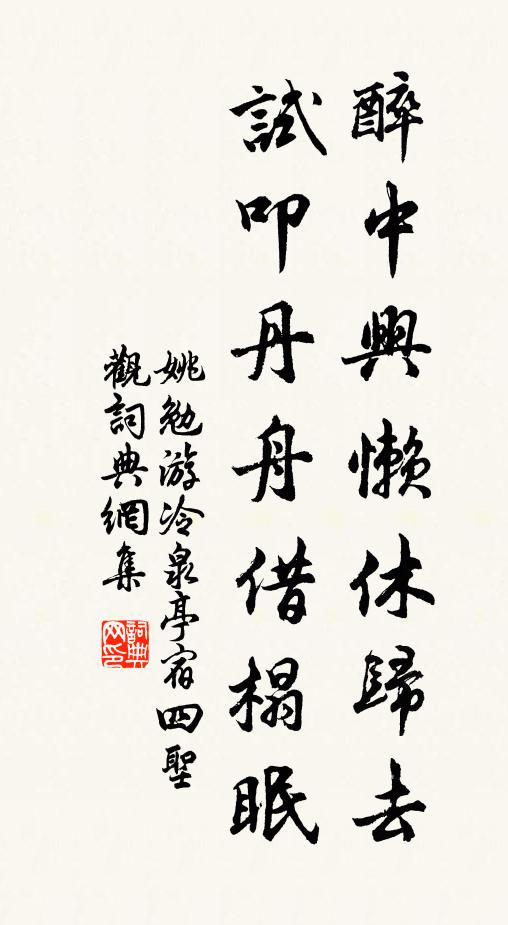 醉中興懶休歸去
試叩丹舟借榻眠
姚勉游冷泉亭宿四聖
觀詞典網集
詞典
网印